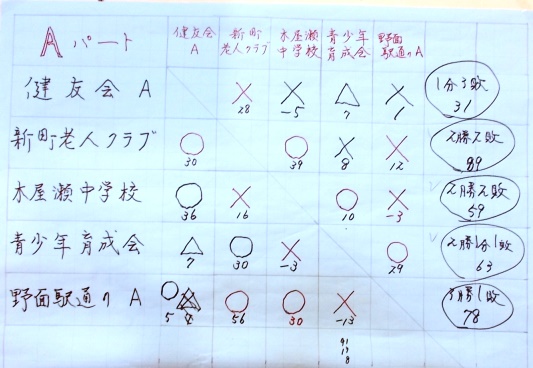 A パート 健友会A 新町老人クラブ 木屋瀬中学校 青少年育成会 野面駅通りA
健友会 A × 28 × -5 △ 7 × 1 1分3敗 31
新町老人クラブ ○ 30 ○ 39 × 8 × 12 2勝2敗 89
木屋瀬中学校 ○ 36 × 16 ○ 10 × -3 2勝2敗 59
青少年育成会 △ 7 ○ 30 × -3 ○ 29 2勝1分1敗 63
野面駅通り A ○ 5 ○ 56 ○ 30 × -13 3勝1敗 78